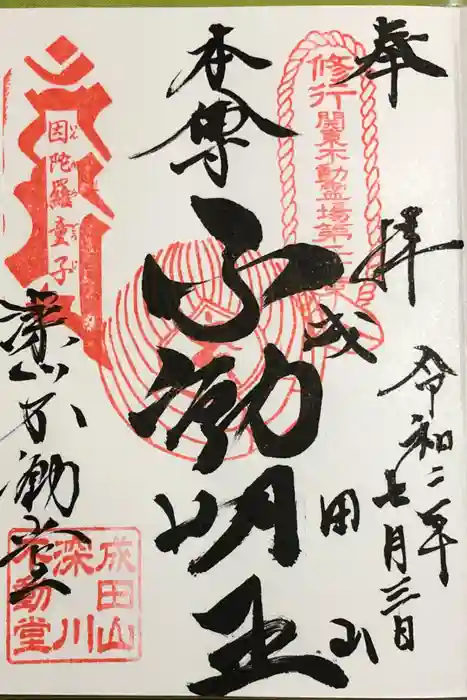 奉拝
令和二年
七月三日
修行
関東不動霊場第二十
成田山
本尊
不動明王
因陀羅童子
深川不動堂
成田山
深川
不動堂